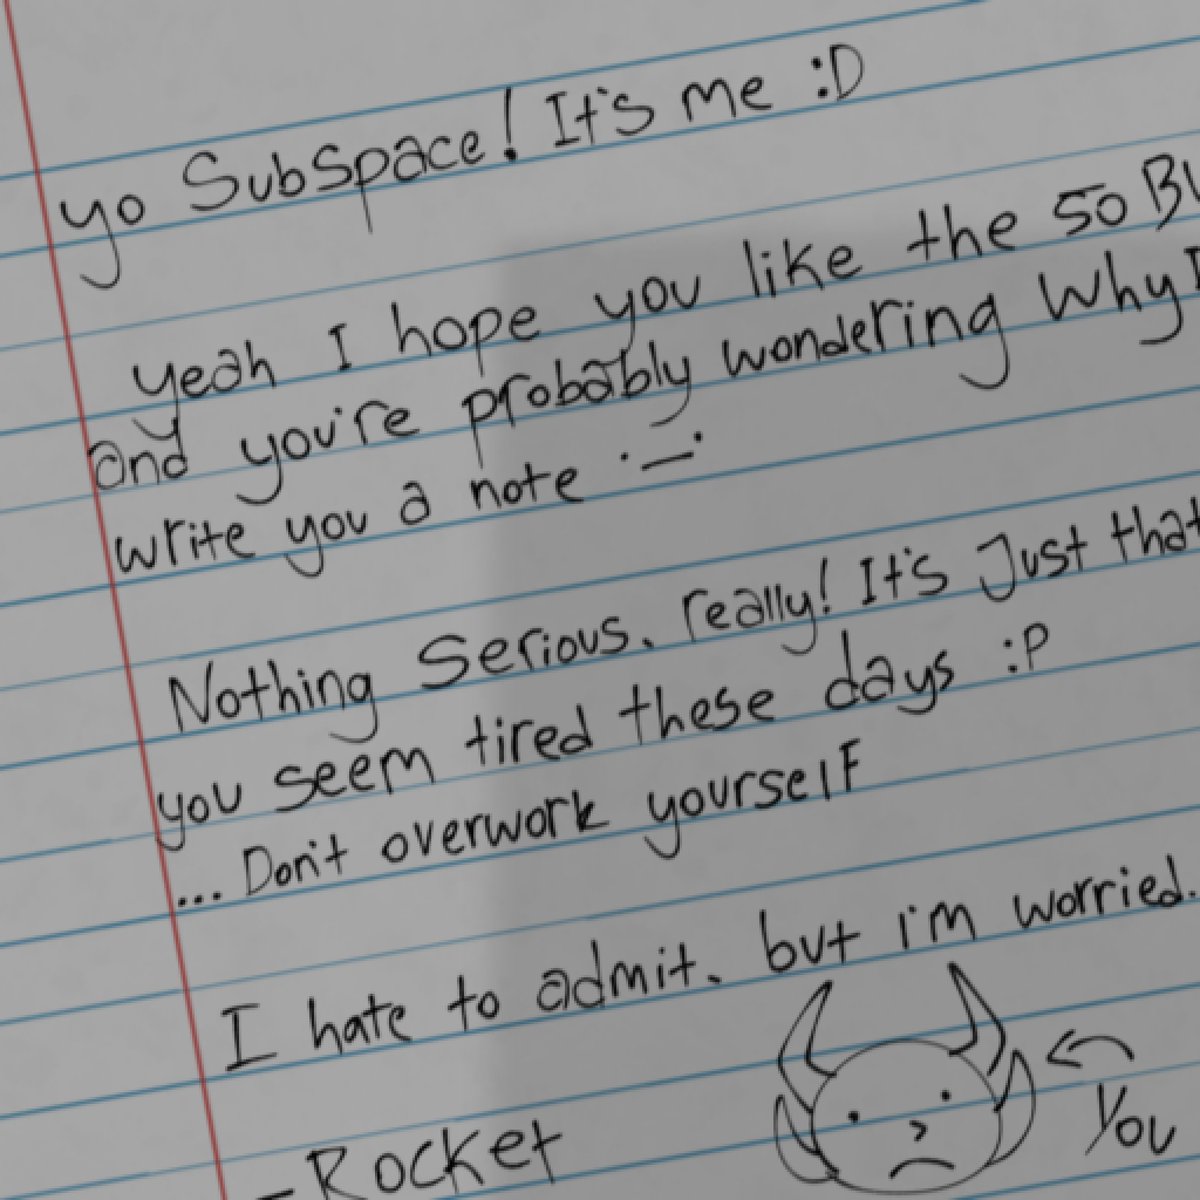 yo SubSpace! It's me :D
yeah I hope you like the 50
and you're probably wondering Why I
write you a note ·—·
Nothing Serious. really! It's Just that
you seem tired these days :P
... Don't overwork yourself
I hate to admit. but i'm worried.
You
- Rocket